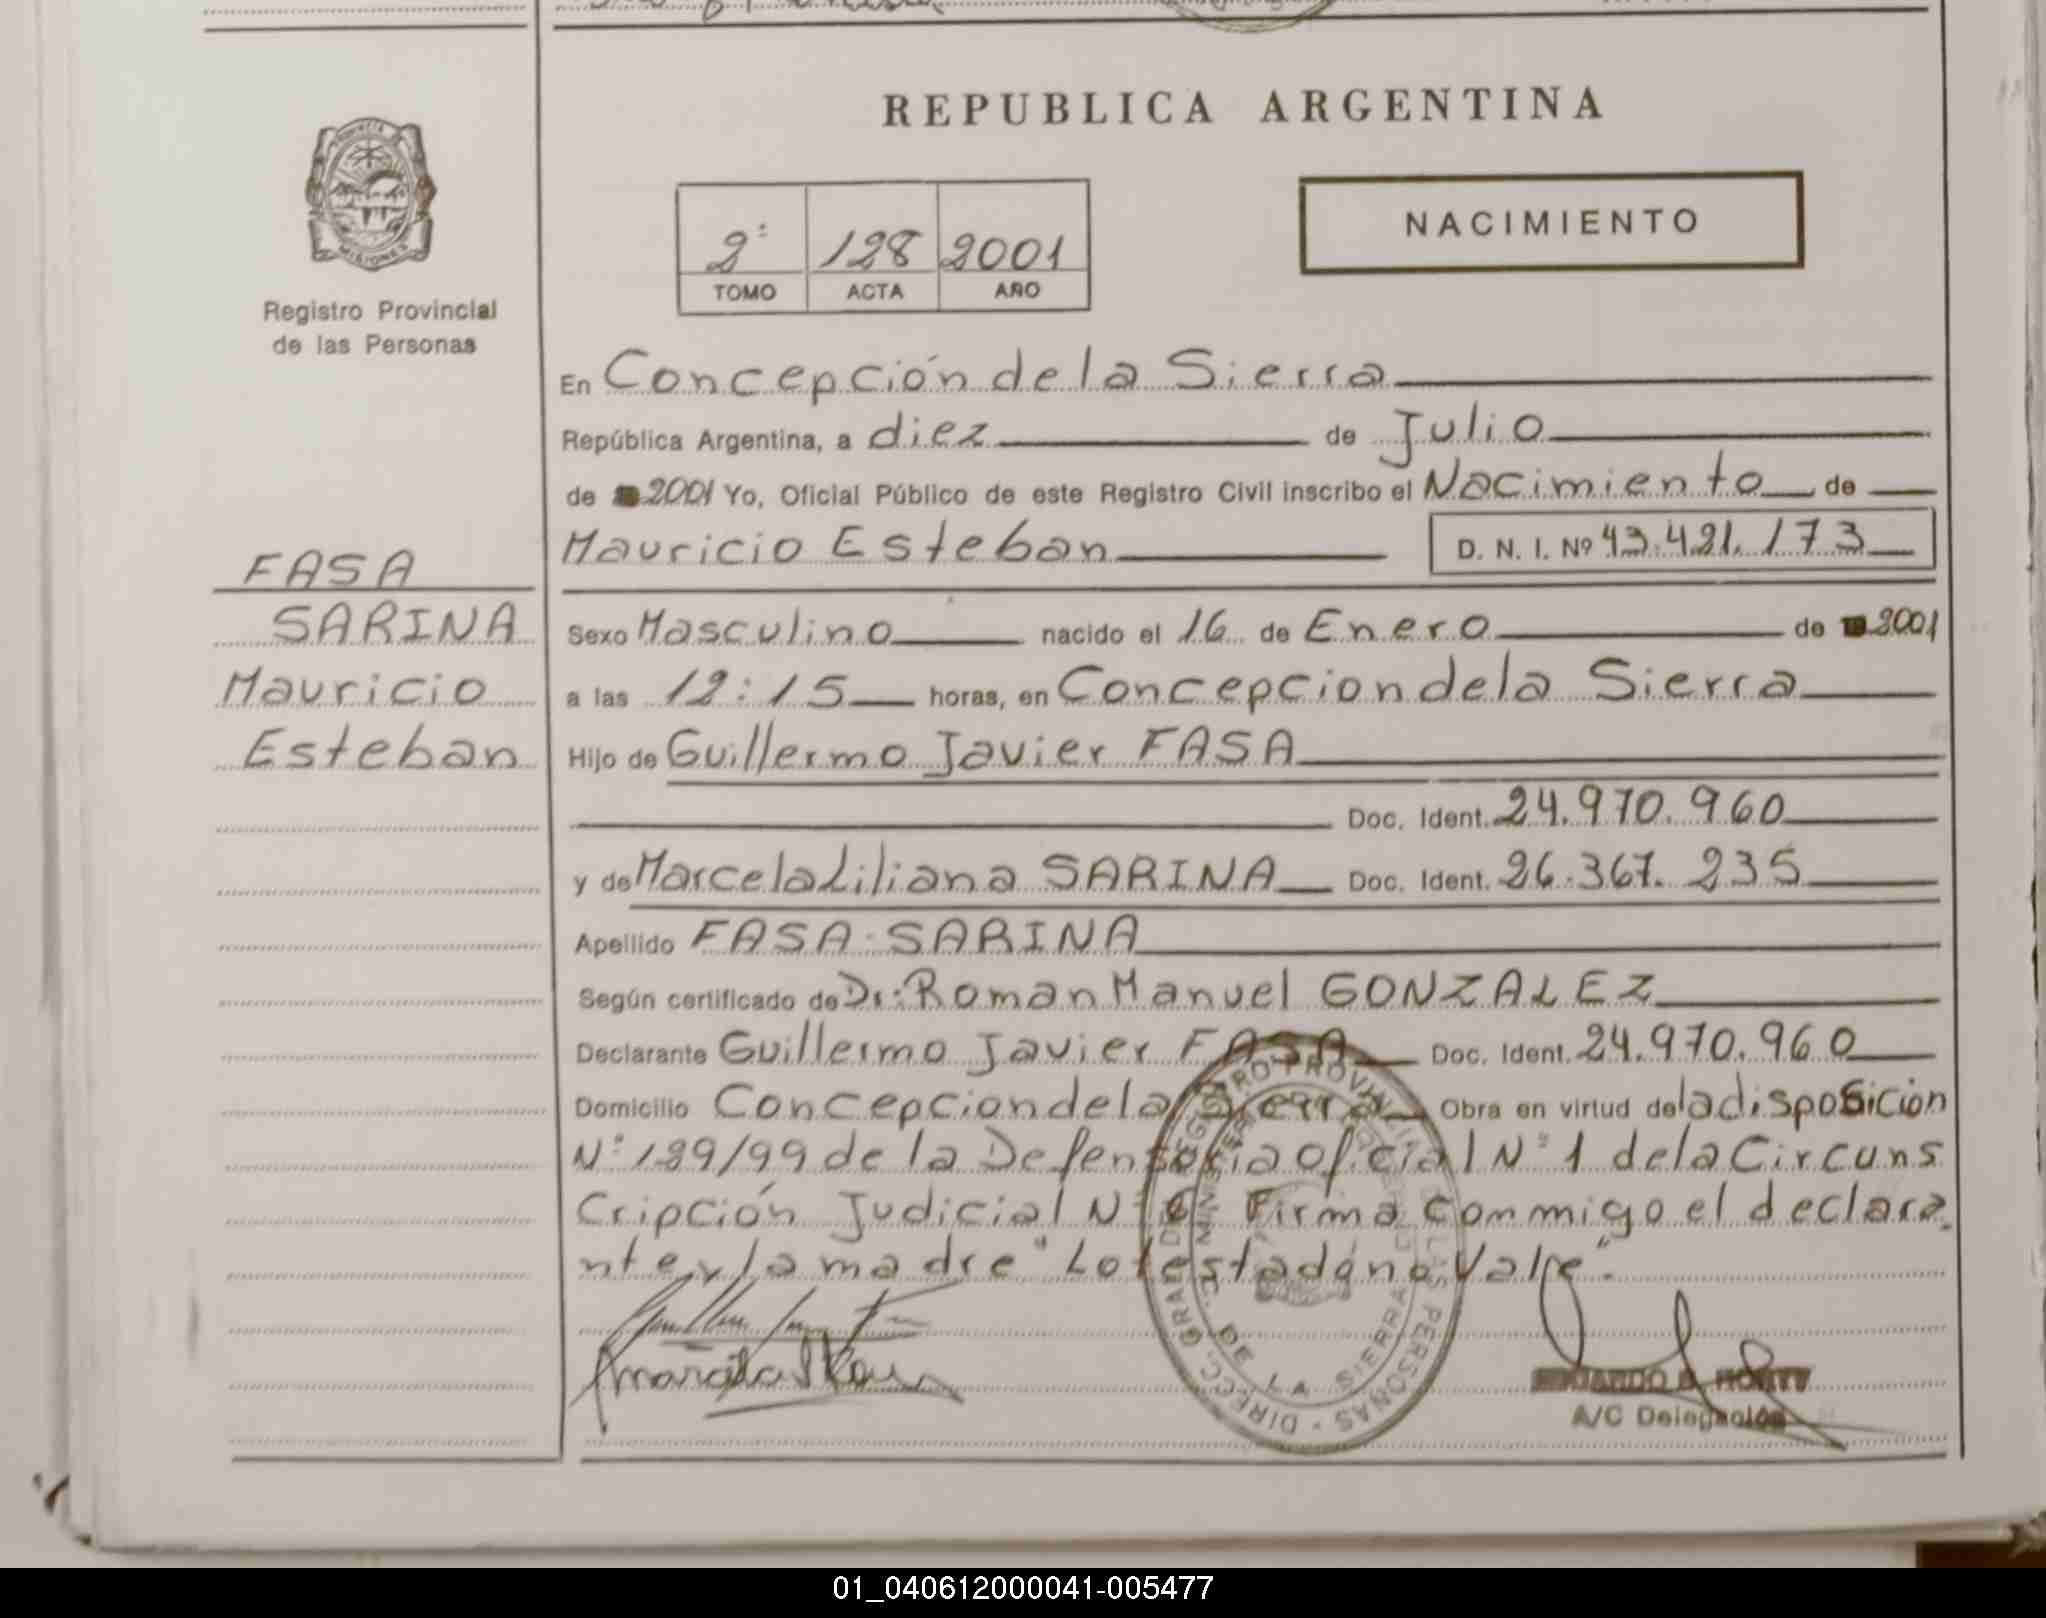 REPUBLICA ARGENTINA
PROVINCIA
MISIONES
Registro Provincial
de las Personas
2º 128 2001
TOMO ACTA AÑO
NACIMIENTO
En Concepción de la Sierra
República Argentina, a diez de Julio
de 2001 Yo, Oficial Público de este Registro Civil inscribo el Nacimiento de
Mauricio Esteban D. N. I. Nº 43.421.173
FASA
SARINA
Mauricio
Esteban
Sexo Masculino nacido el 16 de Enero de 2001
a las 12:15 horas, en Concepcion de la Sierra
Hijo de Guillermo Javier FASA
Doc. Ident. 24.970.960
y de Marcela Liliana SARINA Doc. Ident. 26.367.235
Apellido FASA SARINA
Según certificado de Dr: Roman Manuel GONZALEZ
Declarante Guillermo Javier FASA Doc. Ident. 24.970.960
Domicilio Concepcion de la Sierra Obra en virtud de la disposición
Nº 189/99 de la Defensoria Oficial Nº 1 de la Circuns
cripción Judicial Nº Firma conmigo el declara
nte y la madre "Lo testado no Vale".
DIRECC. GRAL. DEL REGISTRO PROVINCIAL DE LAS PERSONAS
DE LA SIERRA
A/C Delegación
01_040612000041-005477